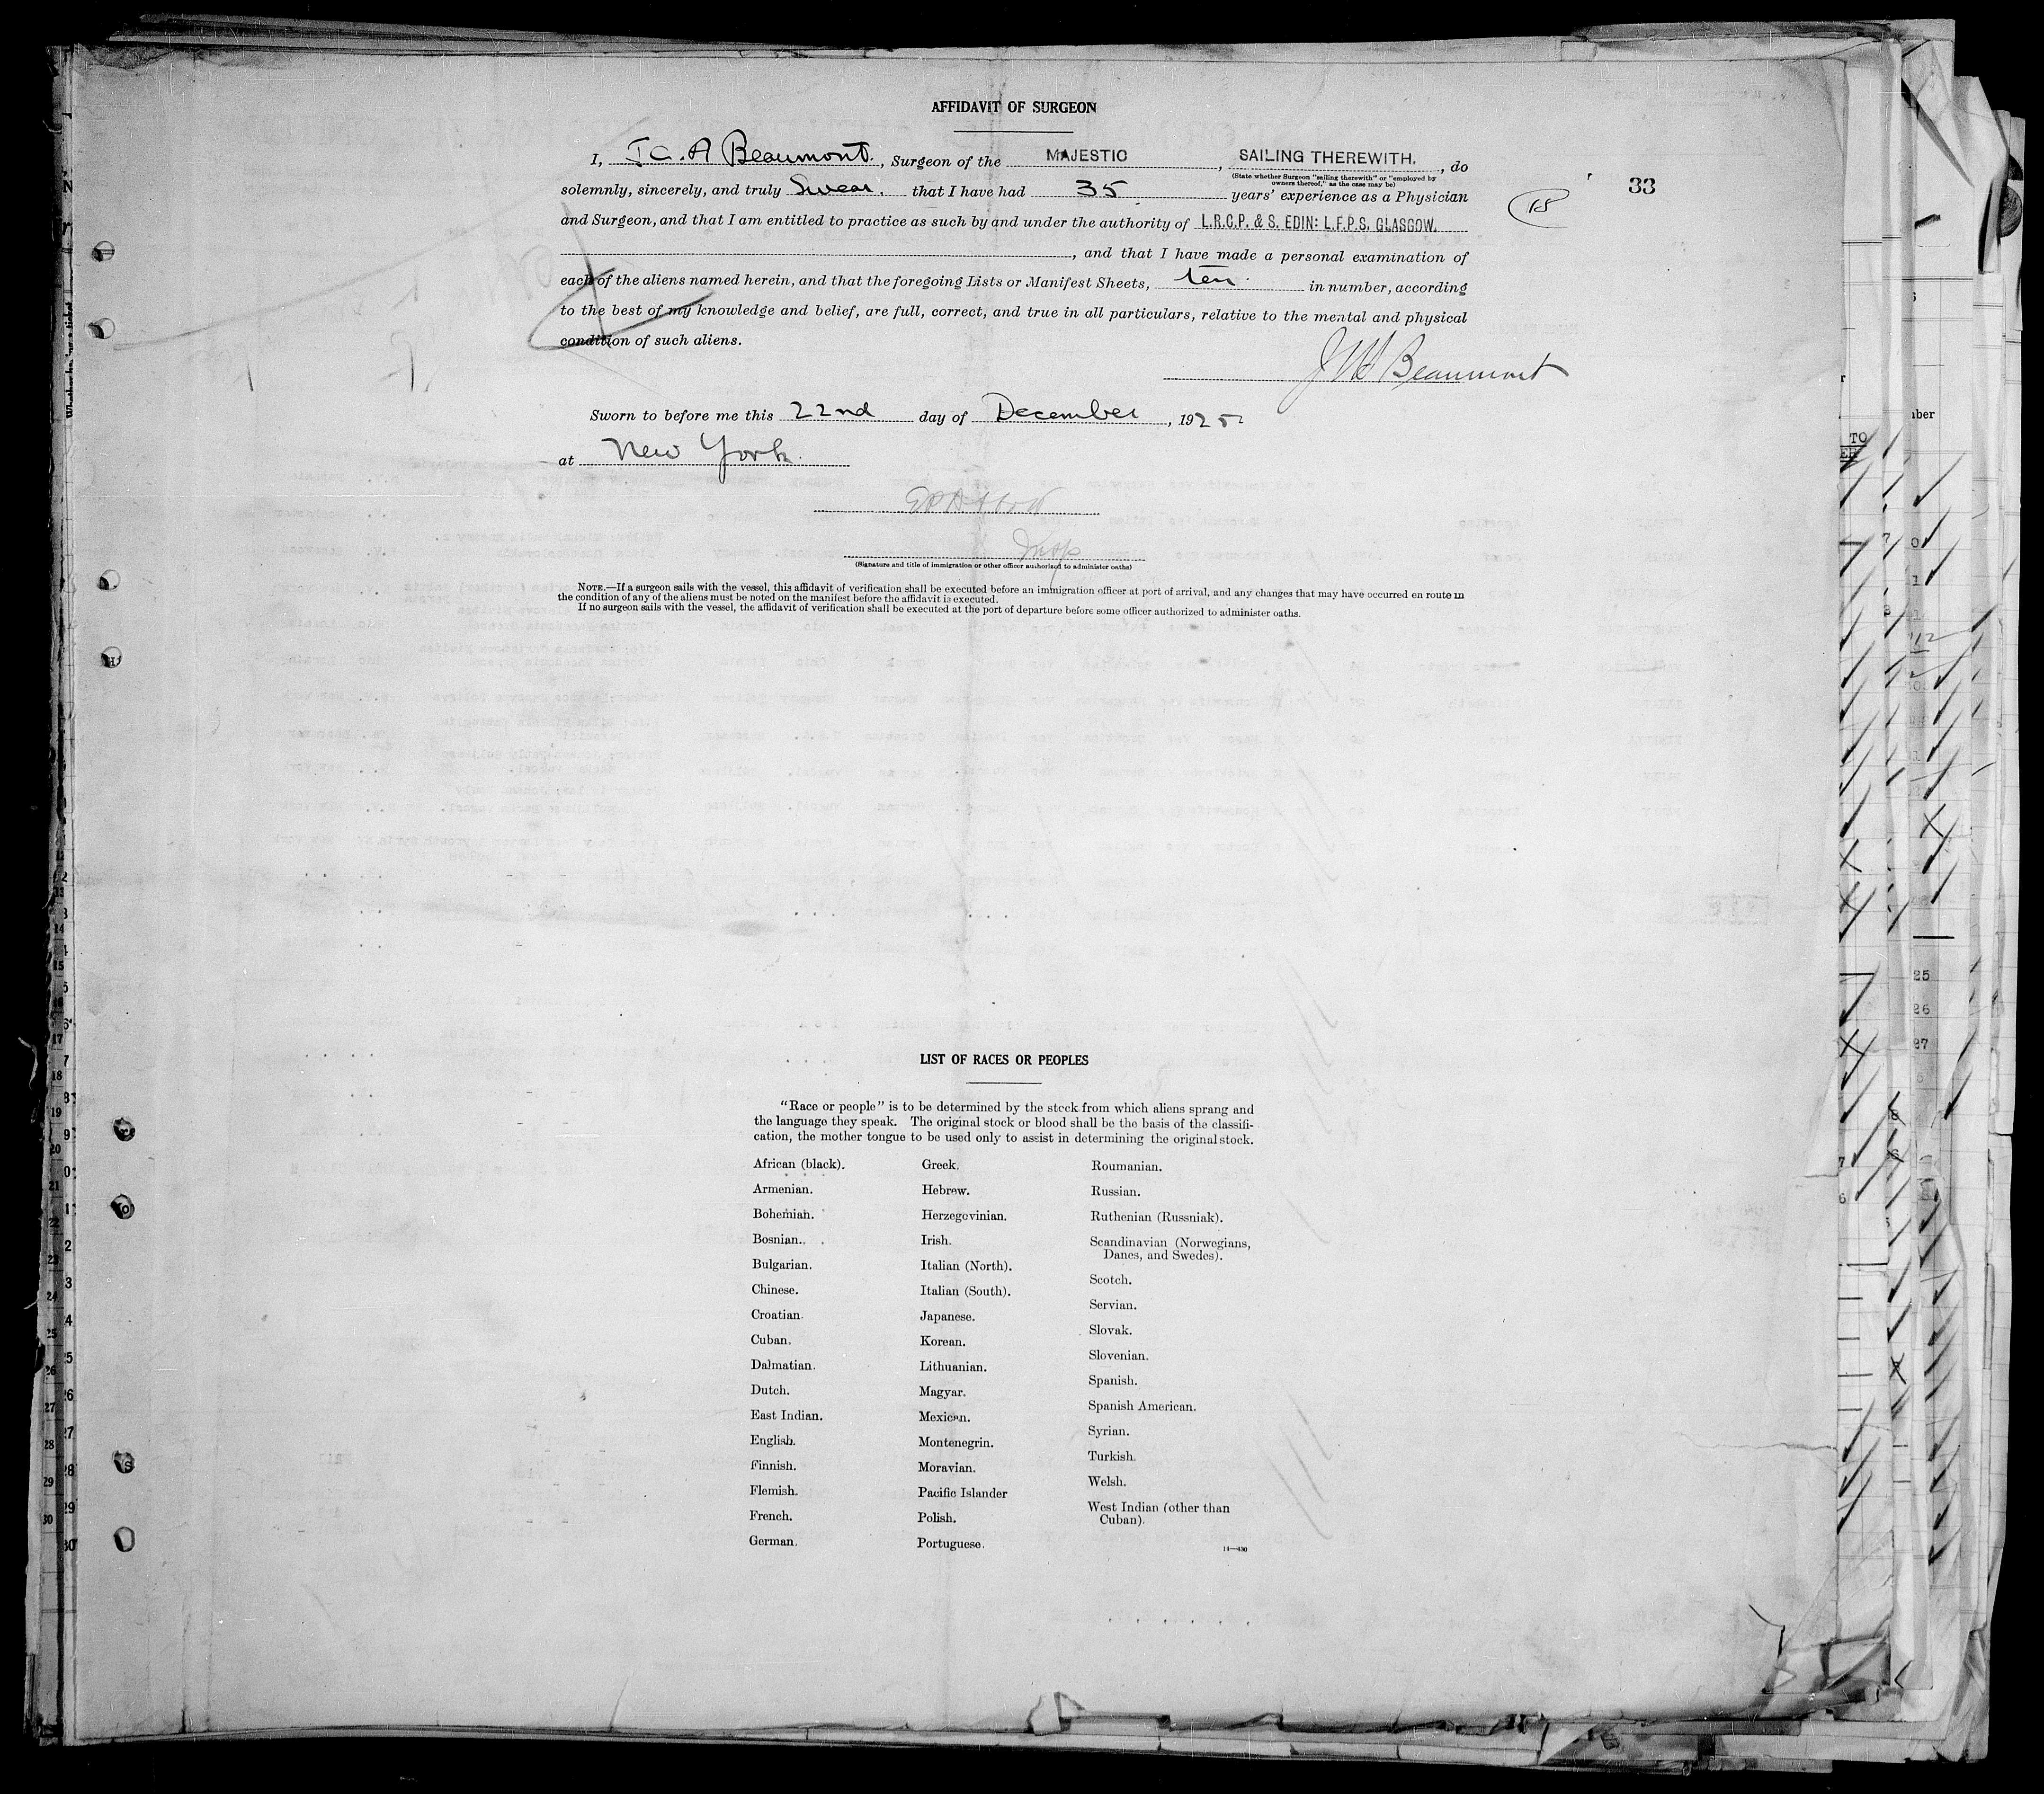 AFFIDAVIT OF SURGEON
33
18
I, J C. A Beaumont., Surgeon of the MAJESTIC, SAILING THEREWITH., do
(State whether Surgeon "sailing therewith" or "employed by owners thereof," as the case may be)
solemnly, sincerely, and truly Swear. that I have had 35 years' experience as a Physician
and Surgeon, and that I am entitled to practice as such by and under the authority of L.R.C.P. & S. EDIN: L.F.P.S. GLASGOW.
, and that I have made a personal examination of
each of the aliens named herein, and that the foregoing Lists or Manifest Sheets, ten in number, according
to the best of my knowledge and belief, are full, correct, and true in all particulars, relative to the mental and physical
condition of such aliens.
Beaumont
Sworn to before me this 22nd day of December, 1925
at New York.
Insp
(Signature and title of immigration or other officer authorized to administer oaths)
NOTE.—If a surgeon sails with the vessel, this affidavit of verification shall be executed before an immigration officer at port of arrival, and any changes that may have occurred en route in
the condition of any of the aliens must be noted on the manifest before the affidavit is executed.
If no surgeon sails with the vessel, the affidavit of verification shall be executed at the port of departure before some officer authorized to administer oaths.
LIST OF RACES OR PEOPLES
"Race or people" is to be determined by the stock from which aliens sprang and
the language they speak. The original stock or blood shall be the basis of the classifi-
cation, the mother tongue to be used only to assist in determining the original stock.
African (black).
Armenian.
Bohemian.
Bosnian.
Bulgarian.
Chinese.
Croatian.
Cuban.
Dalmatian.
Dutch.
East Indian.
English.
Finnish.
Flemish.
French.
German.
Greek.
Hebrew.
Herzegovinian.
Irish.
Italian (North).
Italian (South).
Japanese.
Korean.
Lithuanian.
Magyar.
Mexican.
Montenegrin.
Moravian.
Pacific Islander
Polish.
Portuguese.
Roumanian.
Russian.
Ruthenian (Russniak).
Scandinavian (Norwegians,
Danes, and Swedes).
Scotch.
Servian.
Slovak.
Slovenian.
Spanish.
Spanish American.
Syrian.
Turkish.
Welsh.
West Indian (other than
Cuban).
14—430